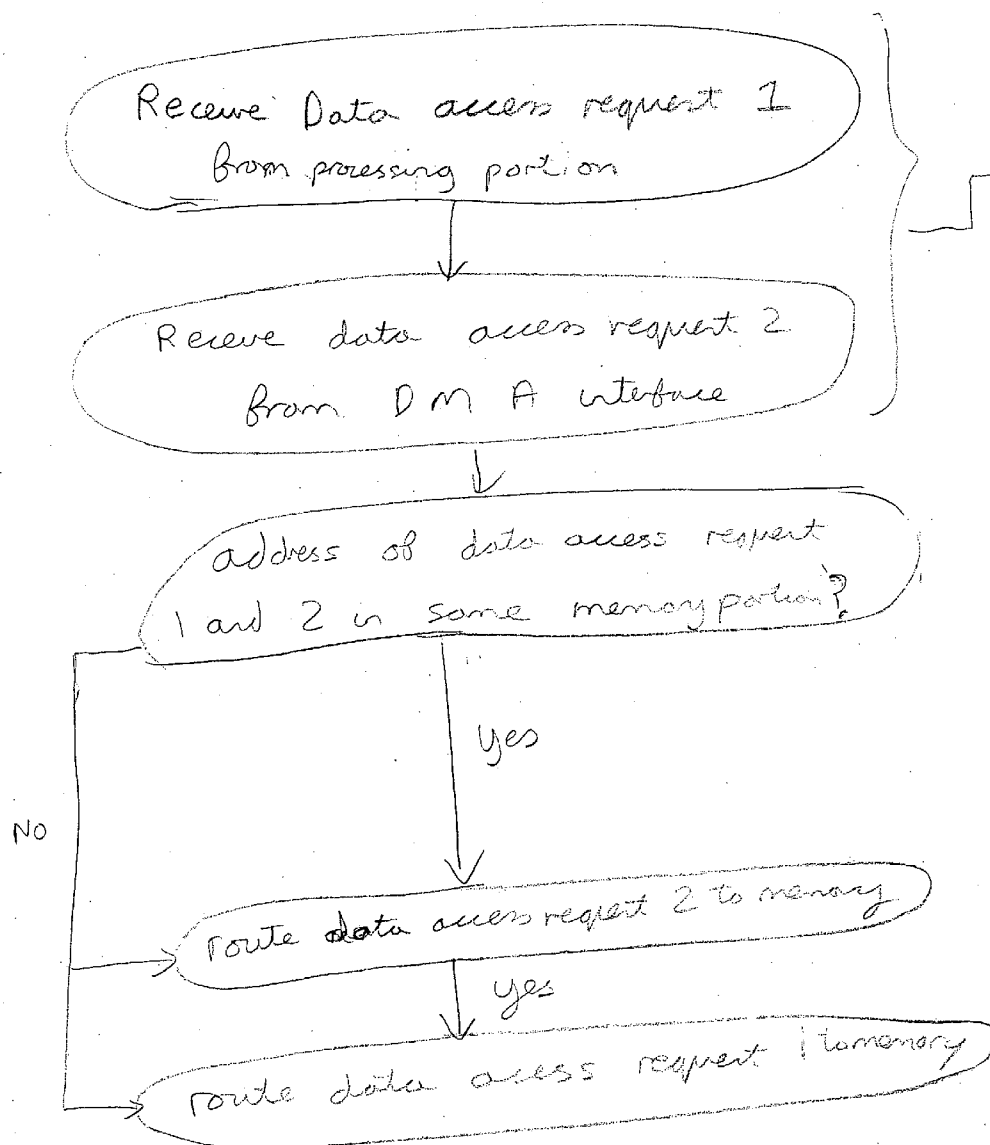 Receive Data access request 1
from processing portion
Receve data access request 2
from DMA interface
address of data access request
1 and 2 in same memory portion?
yes
NO
route data access request 2 to memory
yes
route data access request 1 to memory